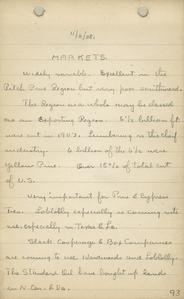 4/6/08.
MARKETS.
Widely variable. Excellent in the
Pitch Pine Region but very poor southward.
The Region as a whole may be classed
as an Exporting Region. 6½ billion ft.
were cut in 1907. Lumbering is the chief
industry. 6 billion of the 6½ were
Yellow Pine. Over 15% of total cut
of U.S.
Very important for Pine & Cypress
Ties. Loblolly especially is coming into
use, especially in Texas & La.
Slack Cooperage & Box Companies
are coming to use Hardwoods and Loblolly.
The Standard Oil have bought up lands
in N. Car. & Va.
93